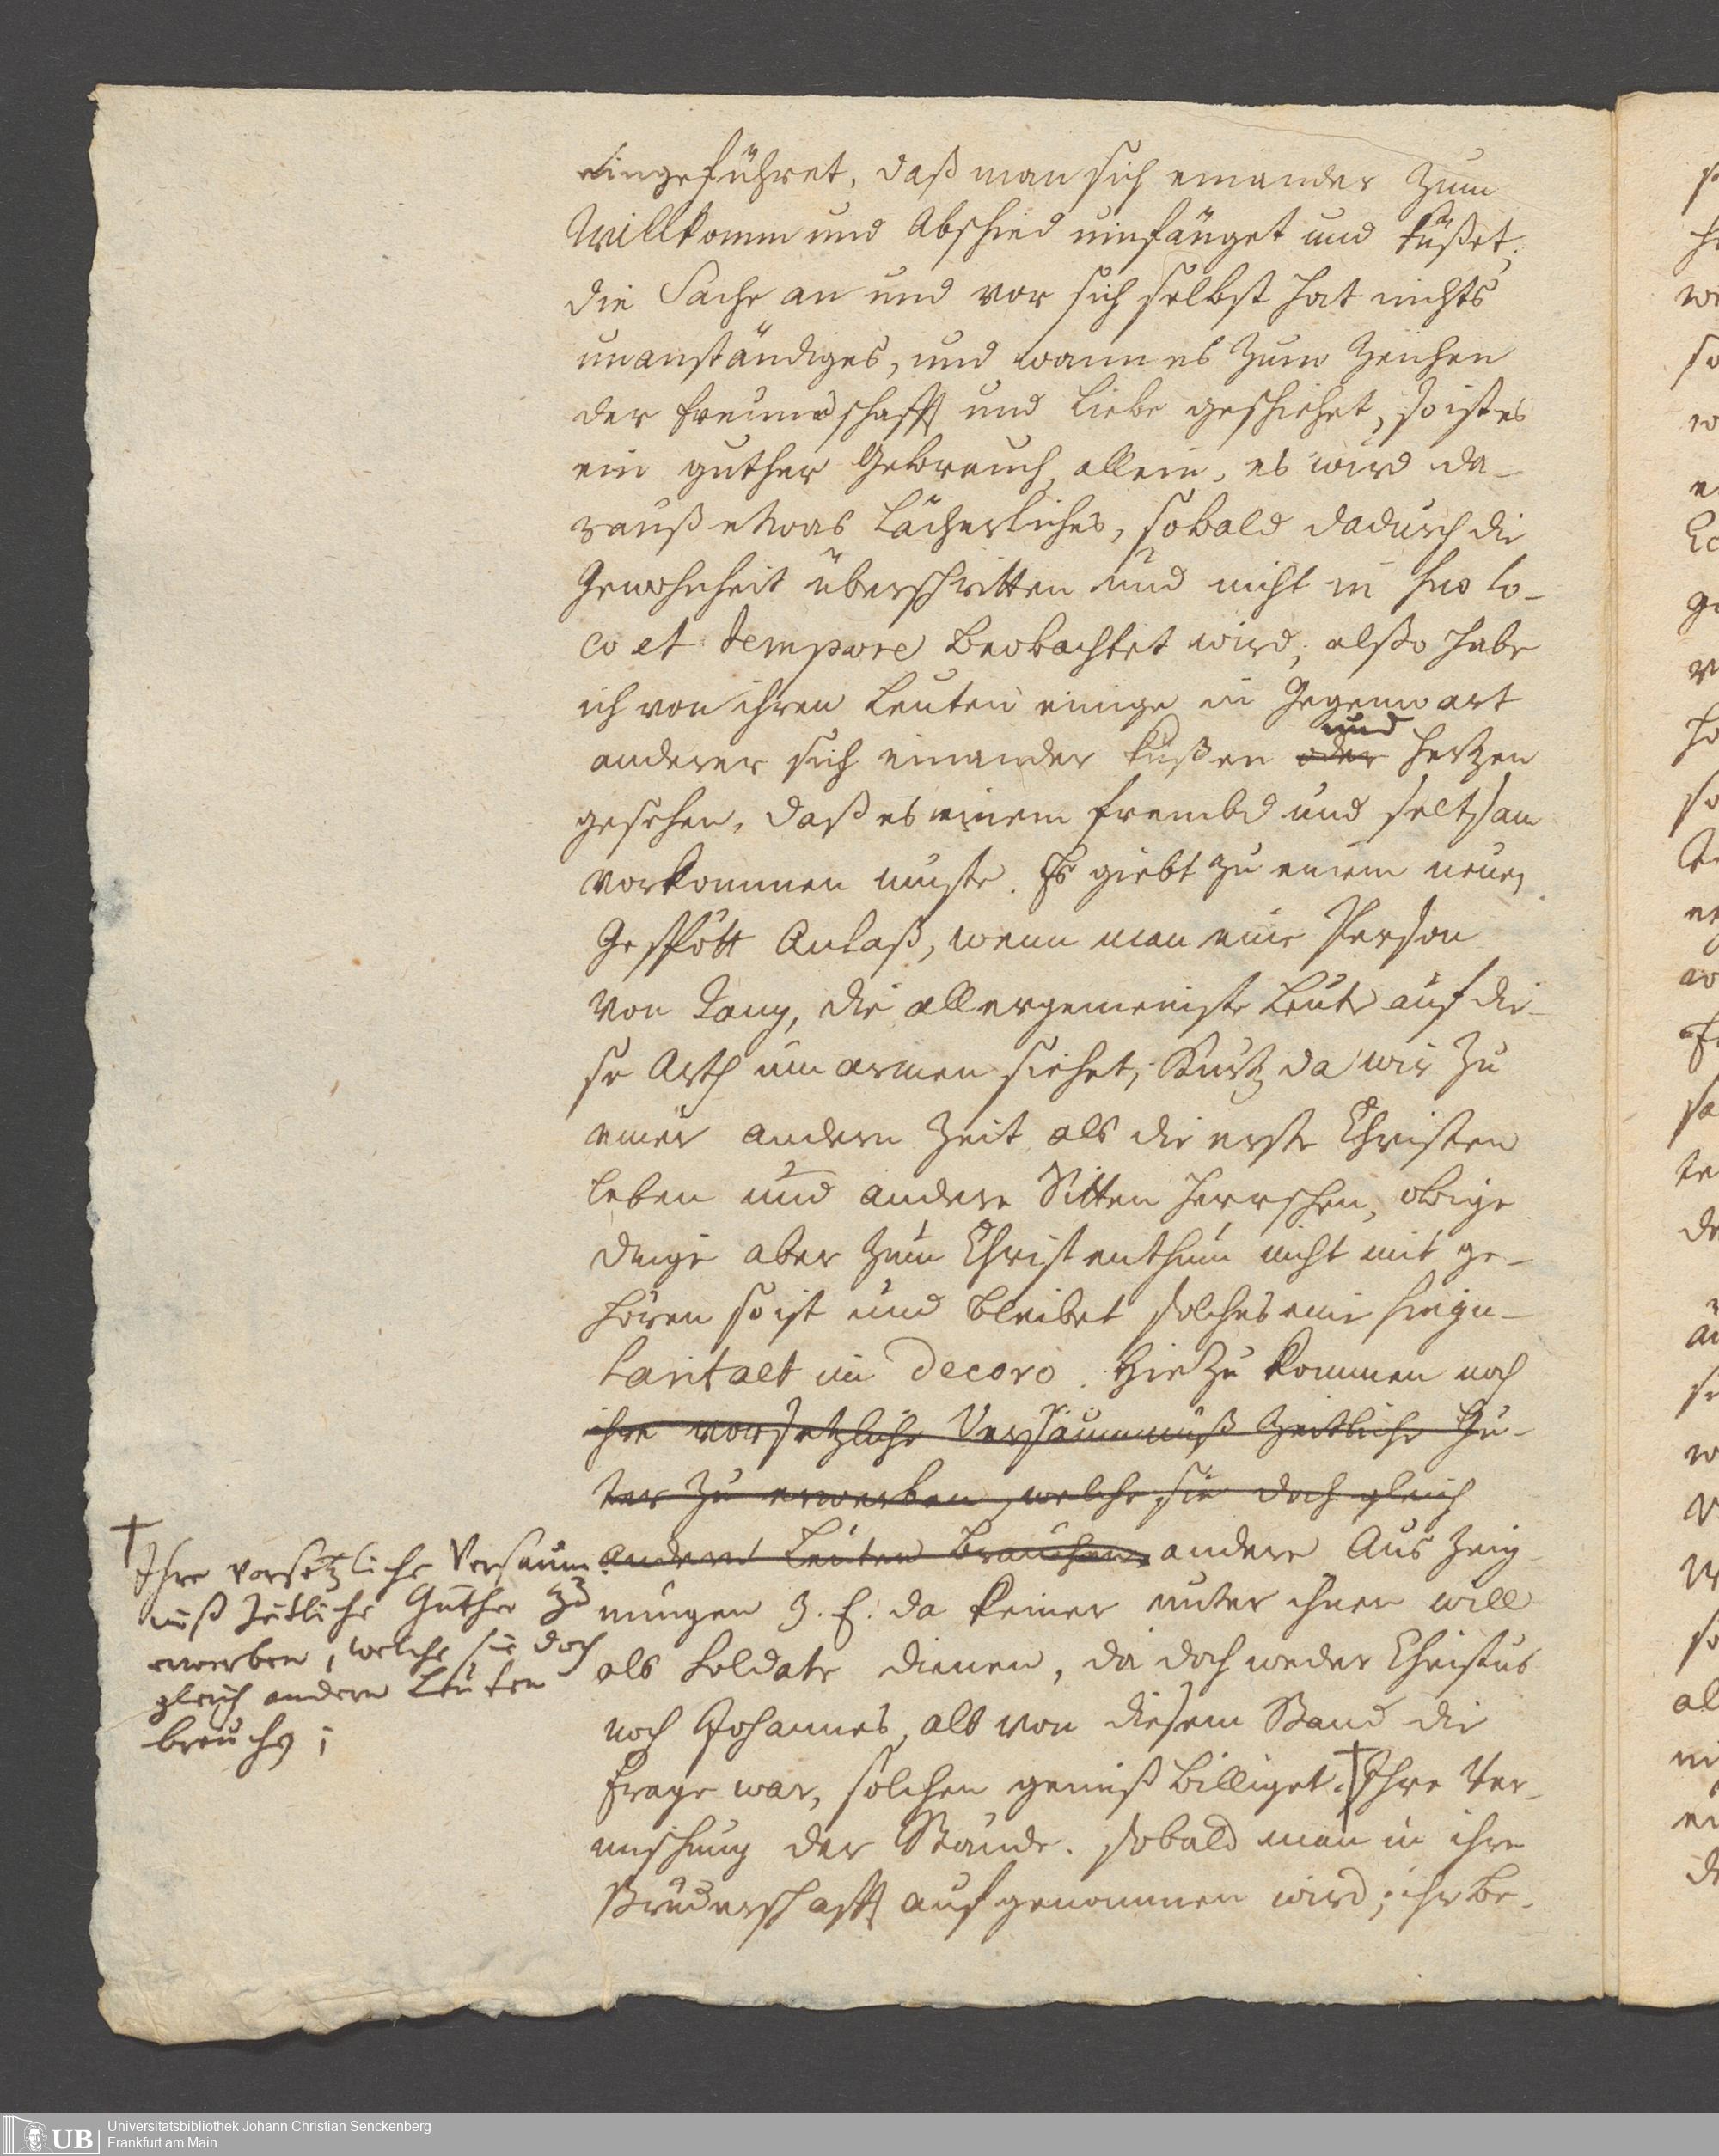 eingeführet, daß man sich einander zum
Willkomm und Abschied umfänget und küßet;
die Sache an und vor sich selbst hat nichts
unanständiges, und wann es zum Zeichen
der Freundschafft und Liebe geschiehet, so ist es
ein guther Gebrauch, allein, es wird da-
rauß etwas Lächerliches, sobald dadurch die
Gewohnheit überschritten und nicht in suo lo-
co et tempore beobachtet wird, alßo habe
ich von ihren Leuten einige in Gegenwart
und
anderer sich einander küßen oder hertzen
gesehen, daß es einem frembd und seltsam
vorkommen muste. Es giebt zu einem neuen
Gespött Anlaß, wenn man eine Person
von Rang, die allergemeinste Leute auf die-
se Arth umarmen siehet, Kurtz da wir zu
einer andern Zeit als die erste Christen
leben und andere Sitten herrschen, obige
Dinge aber zum Christenthum nicht mit ge-
hören so ist und bleibet solches eine singu-
laritaet in Decoro. Hiezu kommen noch
ihre vorsetzliche Versäumnuß zeitliche Gü-
ter zu erwerben, welche sie doch gleich
andern Leuten brauchen, andere Auszeig-
nungen z. E. da keiner unter ihnen will
als Soldate dienen, da doch weder Christus
noch Johannes, alß von diesem Stand die
Frage war, solchen gemißbilliget. † Ihre Ver-
mischung der Stände. sobald man in ihre
Brüderschafft aufgenommen wird; ihr be-
†
Ihre vorsetzliche Versaum-
nuß zeitliche Güther zu
erwerben, welche sie doch
gleich andern Leuten
brauchen;
UB
Universitätsbibliothek Johann Christian Senckenberg
Frankfurt am Main